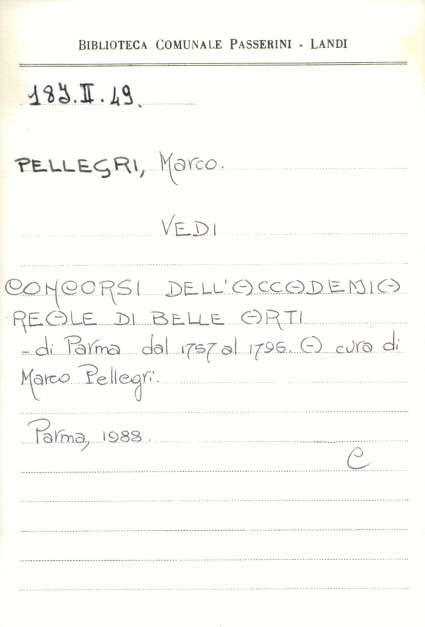 BIBLIOTECA COMUNALE PASSERINI - LANDI
187.II.49.
PELLEGRI, Marco.
VEDI
CONCORSI DELL'ACCADEMIA
REALE DI BELLE ARTI
- di Parma dal 1757 al 1796. A cura di
Marco Pellegri.
Parma, 1988.
C